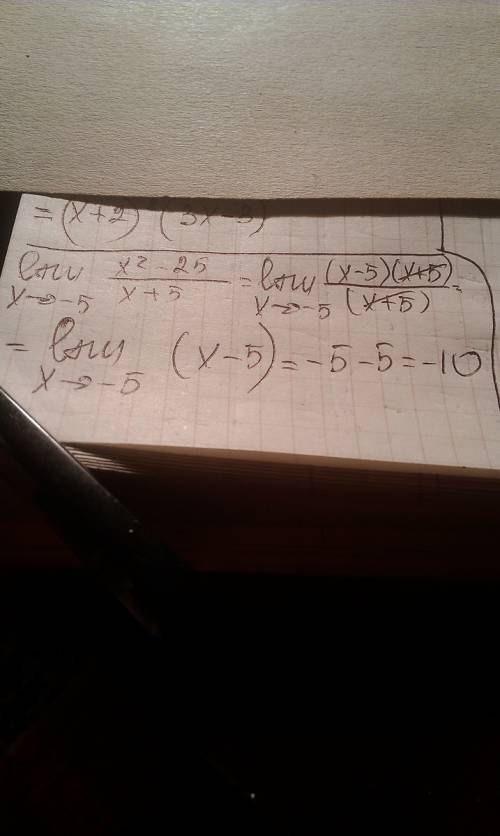 = (x+2) (3x-3)
lim x→-5 x²-25 / x+5 = lim x→-5 (x-5)(x+5) / (x+5) =
= lim x→-5 (x-5) = -5-5 = -10